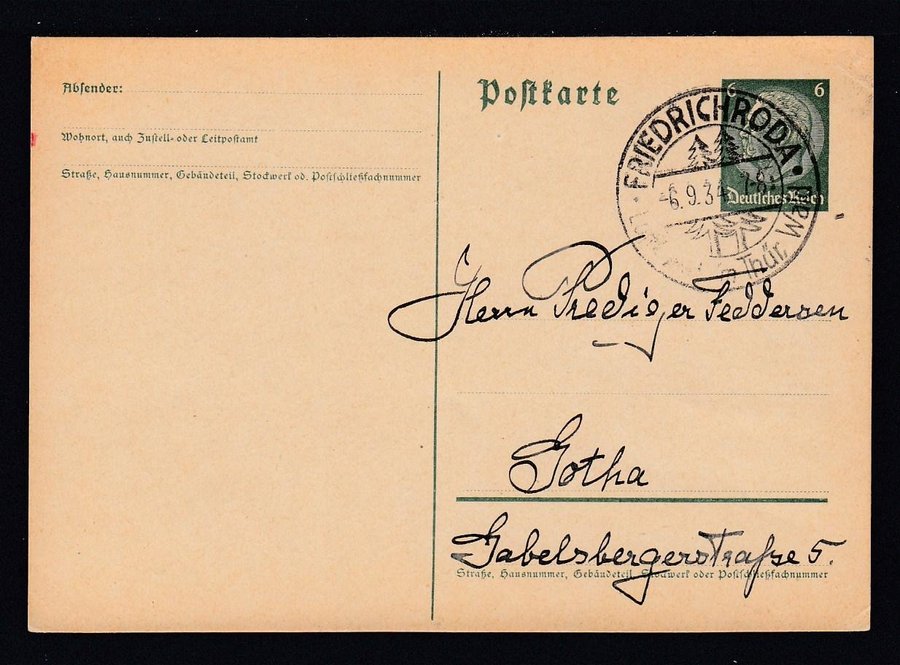 Absender:
Wohnort, auch Zustell- oder Leitpostamt
Straße, Hausnummer, Gebäudeteil, Stockwerk od. Postschließfachnummer
Postkarte
6 6
Deutsches Reich
FRIEDRICHRODA
6.9.34
Thür. Wald
Herrn Prediger Feddersen
Gotha
Gabelsbergerstraße 5.
Straße, Hausnummer, Gebäudeteil, Stockwerk oder Postschließfachnummer